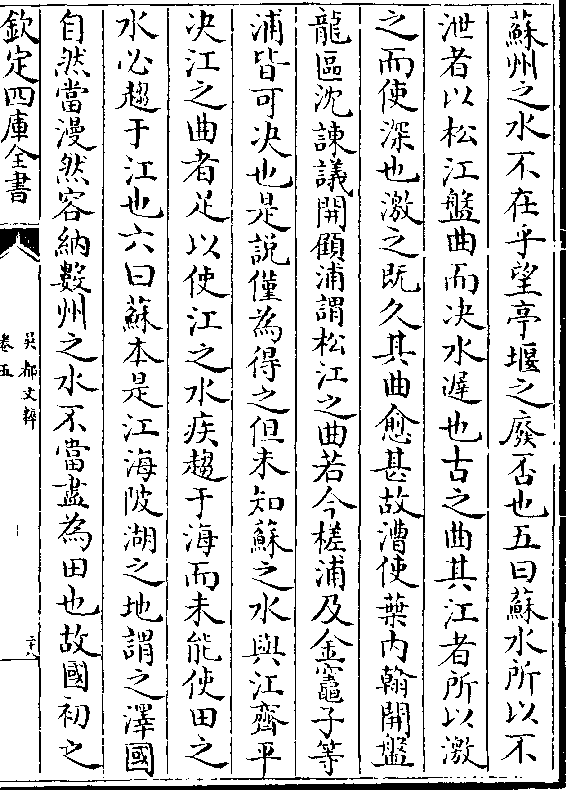 蘇州之水不在乎望亭堰之廢否也五曰蘇水所以不
泄者以松江盤曲而决水遲也古之曲其江者所以激
之而使深也激之既久其曲愈甚故漕使葉内翰開盤
龍區沈諫議開顧浦謂松江之曲若今槎浦及金竈子等
浦皆可决也是説僅為得之但未知蘇之水與江齊平
决江之曲者足以使江之水疾趨于海而未能使田之
水必趨于江也六曰蘇本是江海陂湖之地謂之澤國
自然當漫然容納數州之水不當盡為田也故國初之
欽定四庫全書
吳都文粹
卷五
三十八